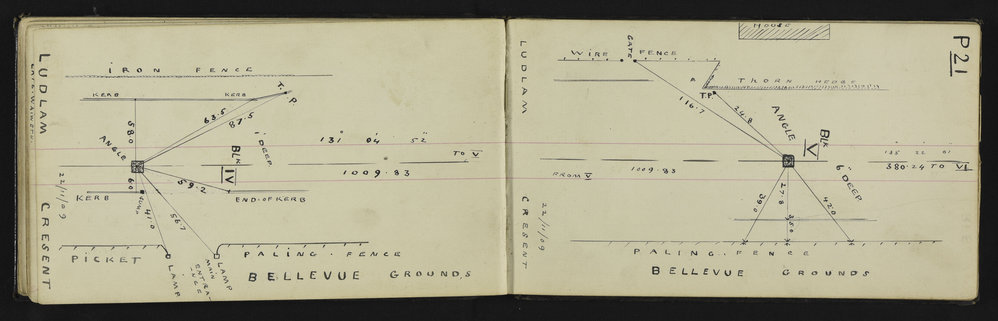 LUDLAM
CRESENT
IRON FENCE
KERB
KERB
T.P.
63.5
87.5
58.0
ANGLE
BLK
IV
-DEEP
131° 04' 52"
TO V
1009.83
60
59.2
22/11/09
KERB
41.0
56.7
END-OF KERB
PICKET
LAMP
LAMP
MAIN
ENTRA
NCE
PALING-FENCE
BELLEVUE GROUNDS
P21
LUDLAM
CRESENT
HOUSE
WIRE
GATE
FENCE
A
THORN HEDGE
T.P.
116.7
24.8
ANGLE
BLK
V
135 22 01
FROM V
1009.83
380.24 TO VI
6" DEEP
39.0
27.8
42.0
35.0
22/11/09
PALING-FENCE
BELLEVUE GROUNDS